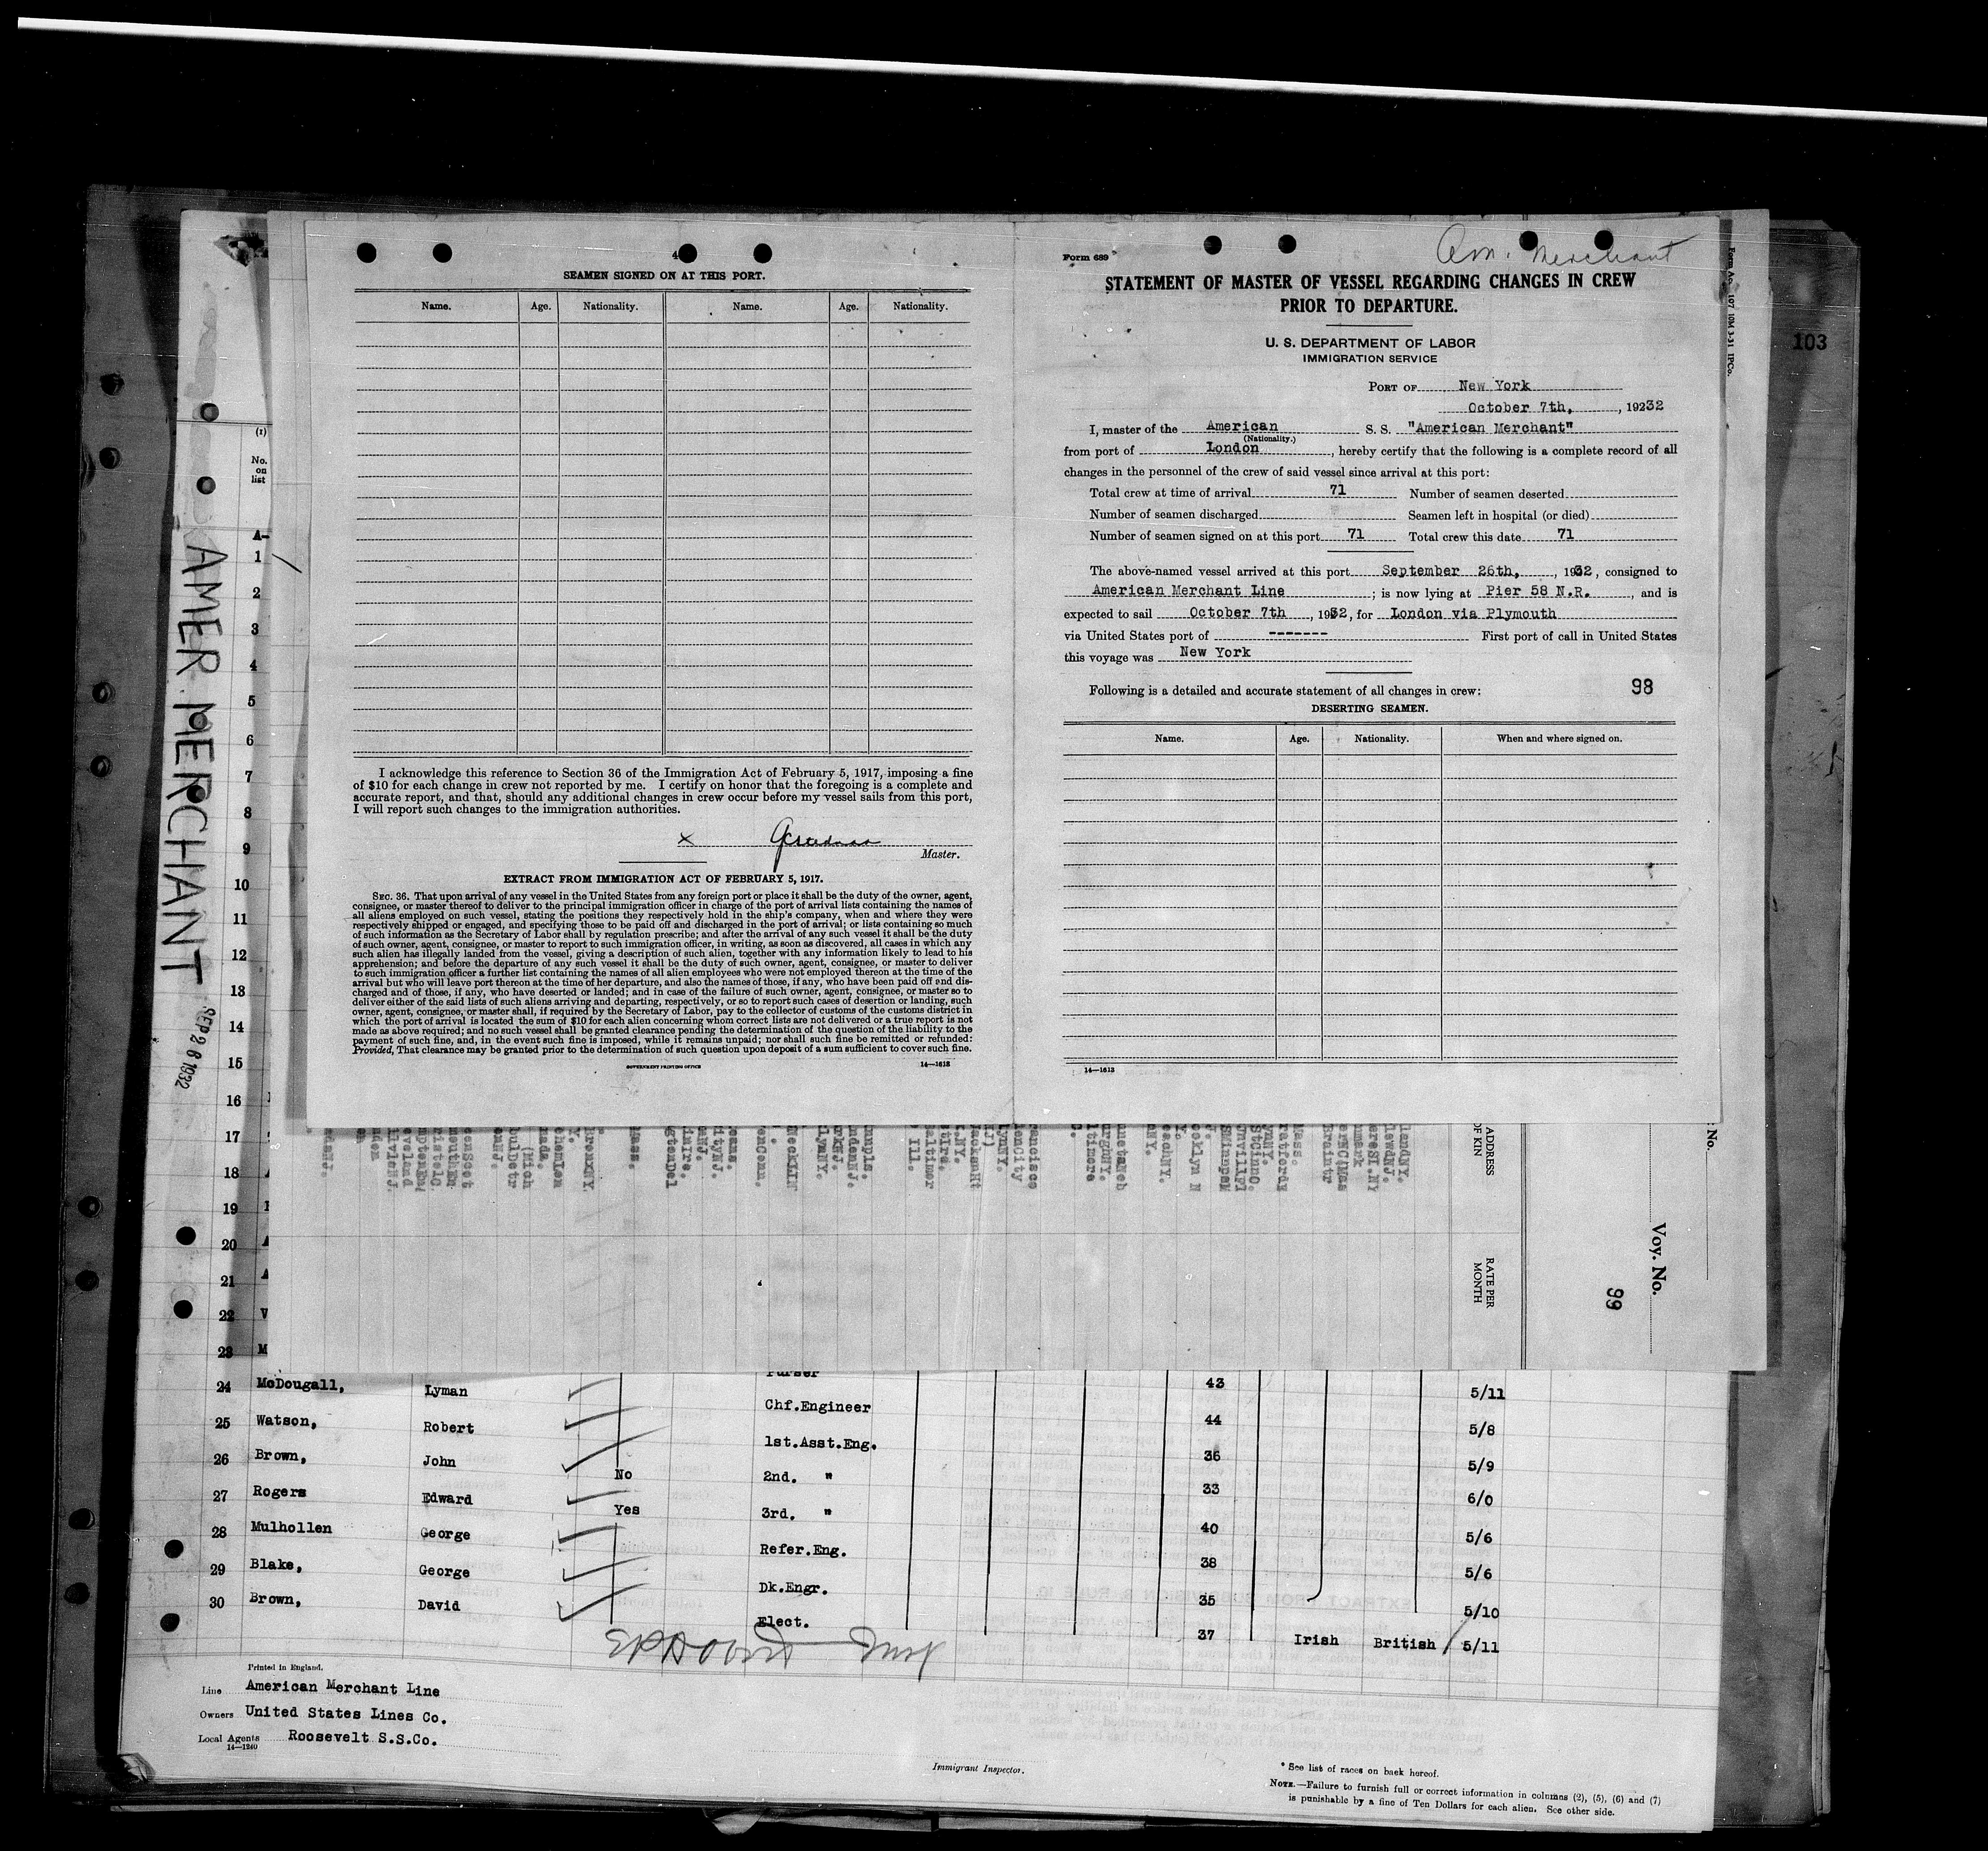 4
SEAMEN SIGNED ON AT THIS PORT.
Name. Age. Nationality. Name. Age. Nationality.
I acknowledge this reference to Section 36 of the Immigration Act of February 5, 1917, imposing a fine
of $10 for each change in crew not reported by me. I certify on honor that the foregoing is a complete and
accurate report, and that, should any additional changes in crew occur before my vessel sails from this port,
I will report such changes to the immigration authorities.
x
Master.
EXTRACT FROM IMMIGRATION ACT OF FEBRUARY 5, 1917.
SEC. 36. That upon arrival of any vessel in the United States from any foreign port or place it shall be the duty of the owner, agent,
consignee, or master thereof to deliver to the principal immigration officer in charge of the port of arrival lists containing the names of
all aliens employed on such vessel, stating the positions they respectively hold in the ship's company, when and where they were
respectively shipped or engaged, and specifying those to be paid off and discharged in the port of arrival; or lists containing so much
of such information as the Secretary of Labor shall by regulation prescribe; and after the arrival of any such vessel it shall be the duty
of such owner, agent, consignee, or master to report to such immigration officer, in writing, as soon as discovered, all cases in which any
such alien has illegally landed from the vessel, giving a description of such alien, together with any information likely to lead to his
apprehension; and before the departure of any such vessel it shall be the duty of such owner, agent, consignee, or master to deliver
to such immigration officer a further list containing the names of all alien employees who were not employed thereon at the time of the
arrival but who will leave port thereon at the time of her departure, and also the names of those, if any, who have been paid off and dis-
charged and of those, if any, who have deserted or landed; and in case of the failure of such owner, agent, consignee, or master so to
deliver either of the said lists of such aliens arriving and departing, respectively, or so to report such cases of desertion or landing, such
owner, agent, consignee, or master shall, if required by the Secretary of Labor, pay to the collector of customs of the customs district in
which the port of arrival is located the sum of $10 for each alien concerning whom correct lists are not delivered or a true report is not
made as above required; and no such vessel shall be granted clearance pending the determination of the question of the liability to the
payment of such fine, and, in the event such fine is imposed, while it remains unpaid; nor shall such fine be remitted or refunded:
Provided, That clearance may be granted prior to the determination of such question upon deposit of a sum sufficient to cover such fine.
GOVERNMENT PRINTING OFFICE 14—1613
Form 689
Am. Merchant
STATEMENT OF MASTER OF VESSEL REGARDING CHANGES IN CREW
PRIOR TO DEPARTURE.
U. S. DEPARTMENT OF LABOR
IMMIGRATION SERVICE
PORT OF New York
October 7th, , 19232
I, master of the American S. S. "American Merchant"
(Nationality.)
from port of London , hereby certify that the following is a complete record of all
changes in the personnel of the crew of said vessel since arrival at this port:
Total crew at time of arrival 71 Number of seamen deserted
Number of seamen discharged Seamen left in hospital (or died)
Number of seamen signed on at this port 71 Total crew this date 71
The above-named vessel arrived at this port September 26th, , 1932, consigned to
American Merchant Line ; is now lying at Pier 58 N.R. , and is
expected to sail October 7th , 1932, for London via Plymouth
via United States port of ------- First port of call in United States
this voyage was New York
Following is a detailed and accurate statement of all changes in crew: 98
DESERTING SEAMEN.
Name. Age. Nationality. When and where signed on.
14—1613
Form Ac. 107 10M 3-31 IPCo.
103
AMER. MERCHANT
SEP 26 1932
(1)
No. on list
A-
1
2
3
4
5
6
7
8
9
10
11
12
13
14
15
16
17
18
19
20
21
22 V
23 M
ADDRESS
OF KIN
RATE PER
MONTH
Voy. No.
No.
99
Purser
24 McDougall, Lyman Chf.Engineer 43 5/11
25 Watson, Robert 1st.Asst.Eng. 44 5/8
26 Brown, John No 2nd. " 36 5/9
27 Rogers Edward Yes 3rd. " 33 6/0
28 Mulhollen George Refer.Eng. 40 5/6
29 Blake, George Dk.Engr. 38 5/6
30 Brown, David Elect. 35 5/10
37 Irish British 5/11
Printed in England.
Line American Merchant Line
Owners United States Lines Co.
Local Agents Roosevelt S.S.Co.
14—1240
Immigrant Inspector.
* See list of races on back hereof.
NOTE.—Failure to furnish full or correct information in columns (2), (5), (6) and (7)
is punishable by a fine of Ten Dollars for each alien. See other side.